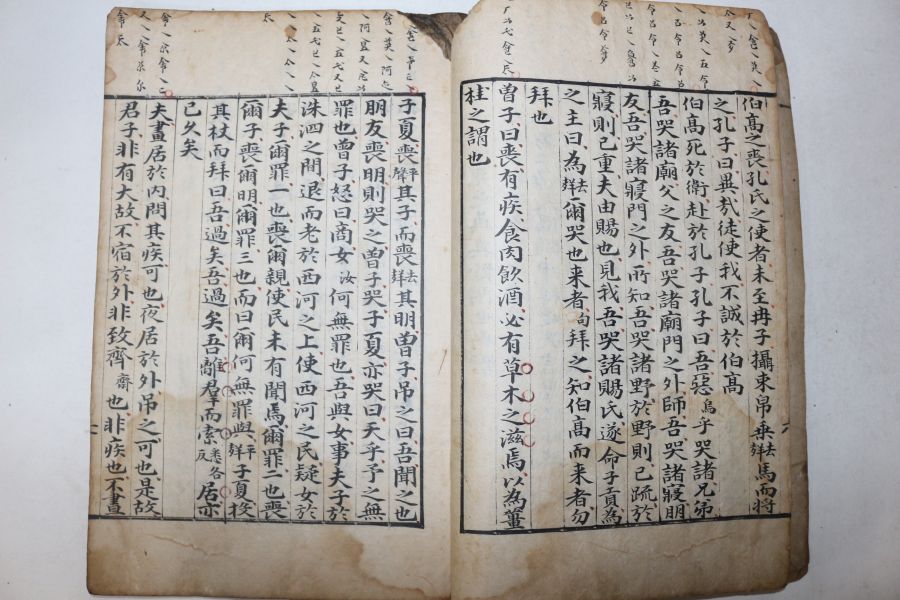 伯高之喪孔氏之使者未至冉子攝束帛乗去聲馬而將
之孔子曰異㢤徒使我不誠於伯高
伯高死於衛赴於孔子孔子曰吾惡烏乎哭諸兄弟
吾哭諸廟父之友吾哭諸廟門之外師吾哭諸寢朋
友吾哭諸寢門之外所知吾哭諸野於野則已疏於
寢則已重夫由賜也見我吾哭諸賜氏遂命子貢為
之主曰為去聲爾哭也来者句拜之知伯高而来者勿
拜也
曽子曰喪有疾食肉飲酒必有草木之滋焉以為薑
桂之謂也
子夏喪平聲其子而喪去聲其明曽子吊之曰吾聞之也
朋友喪明則哭之曽子哭子夏亦哭曰天乎予之無
罪也曽子怒曰商女汝何無罪也吾與女事夫子於
洙泗之間退而老於西河之上使西河之民疑女於
夫子爾罪一也喪爾親使民未有聞焉爾罪二也喪
爾子喪爾明爾罪三也而曰爾何無罪與平聲子夏投
其杖而拜曰吾過矣吾過矣吾離群而索悉各反居亦
已久矣
夫晝居於内問其疾可也夜居於外吊之可也是故
君子非有大故不宿於外非致齊齋也非疾也不晝